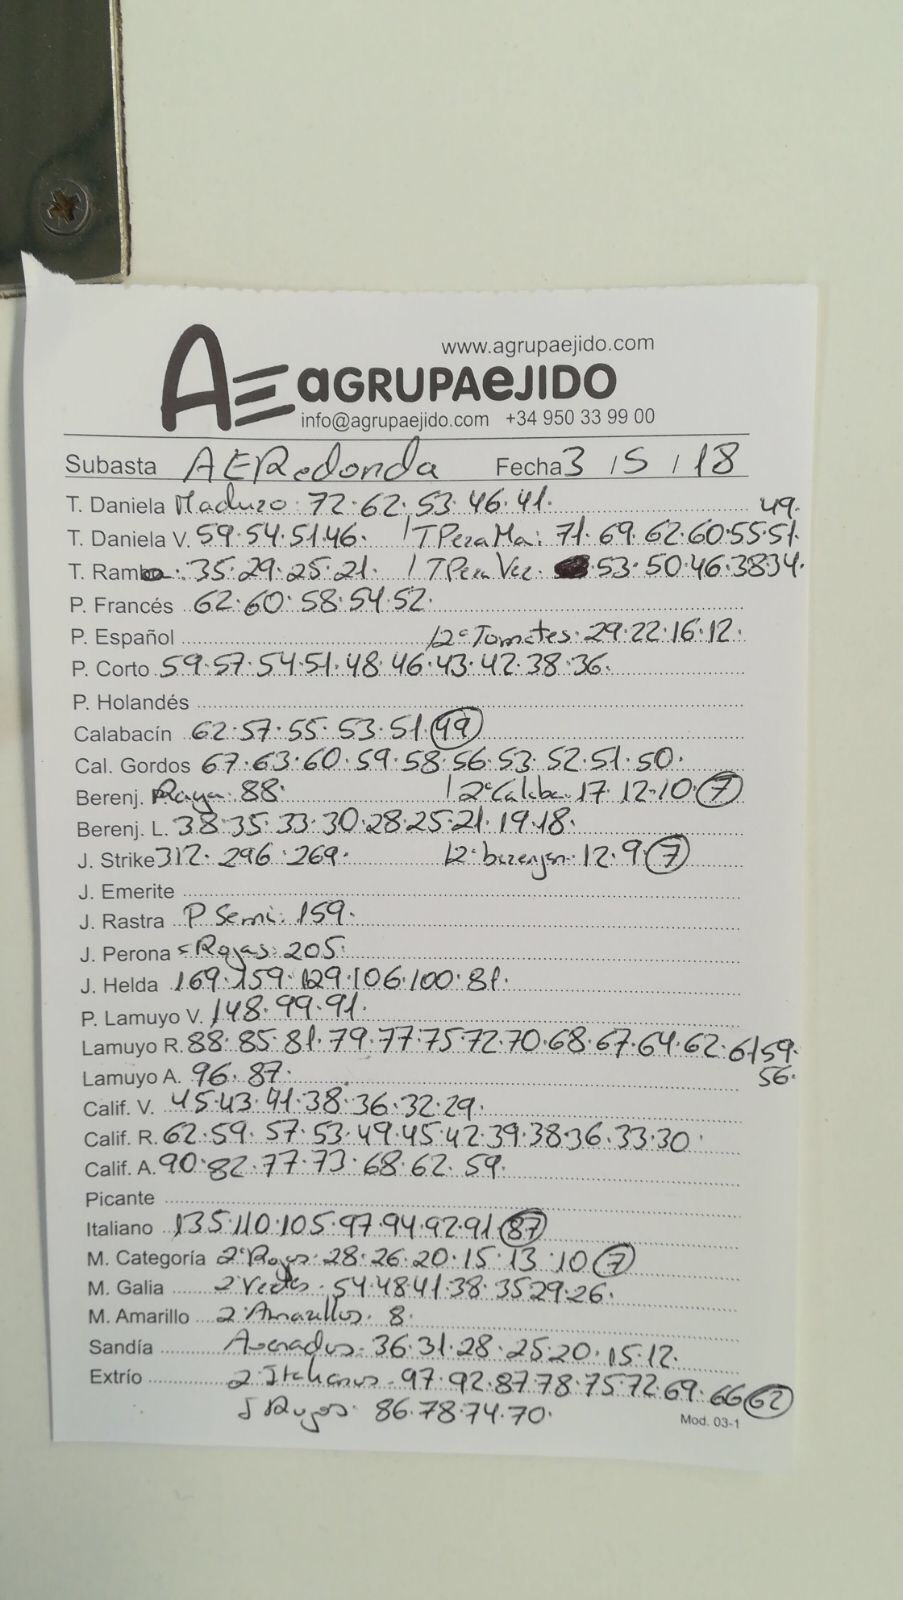 www.agrupaejido.com
AE aGRUPAeJIDO
info@agrupaejido.com +34 950 33 99 00
Subasta AERedonda Fecha 3 / 5 / 18
T. Daniela Maduro: 72.62.53.46.41. 49.
T. Daniela V. 59.54.51.46. / T Pera Ma: 71.69.62.60.55.51
T. Rambo: 35.29.25.21. / T Pera Ver. 53.50.46.38.34.
P. Francés 62.60.58.54.52.
P. Español /2ª Tomates. 29.22.16.12.
P. Corto 59.57.54.51.48.46.43.42.38.36.
P. Holandés
Calabacín 62.57.55.53.51.49
Cal. Gordos 67.63.60.59.58.56.53.52.51.50.
Berenj. Raya: 88. / 2ª Calaba. 17.12.10.7
Berenj. L. 38.35.33.30.28.25.21.19.18.
J. Strike 312.296.269. /2ª berenjen. 12.9.7
J. Emerite
J. Rastra P Semi: 159.
J. Perona = Rojas: 205.
J. Helda 169.159.129.106.100.81.
P. Lamuyo V. 148.99.91.
Lamuyo R. 88.85.81.79.77.75.72.70.68.67.64.62.61.59.
Lamuyo A. 96.87. 56.
Calif. V. 45.43.41.38.36.32.29.
Calif. R. 62.59.57.53.49.45.42.39.38.36.33.30.
Calif. A. 90.82.77.73.68.62.59.
Picante
Italiano 135.110.105.97.94.92.91.87
M. Categoría 2ª Rojos. 28.26.20.15.13.10.7
M. Galia 2 Verdes. 54.48.41.38.35.29.26.
M. Amarillo 2 Amarillos. 8.
Sandía Asurados. 36.31.28.25.20.15.12.
Extrío 2 Italianos. 97.92.87.78.75.72.69.66.62
J Rojos. 86.78.74.70.
Mod. 03-1